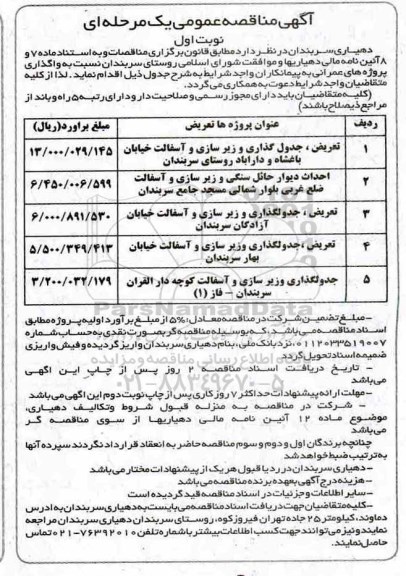 آگهی مناقصه عمومی یک مرحله ای
نوبت اول
دهیاری سربندان در نظر دارد مطابق قانون برگزاری مناقصات و به استناد ماده ۷ و
۸ آئین نامه مالی دهیاریها و موافقت شورای اسلامی روستای سربندان نسبت به واگذاری
پروژه های عمرانی به پیمانکاران واجد شرایط به شرح جدول ذیل اقدام نماید. لذا از کلیه
متقاضیان واجد شرایط دعوت به همکاری می گردد.
(کلیه متقاضیان باید دارای مجوز رسمی و صلاحیت دار و دارای رتبه ۵ راه و باند از
مراجع ذیصلاح باشند)
ردیف عنوان پروژه ها تعریض مبلغ براورد(ریال)
۱ تعریض ، جدول گذاری و زیر سازی و آسفالت خیابان باغشاه و داراباد روستای سربندان ۱۳/۰۰۰/۰۲۹/۱۴۵
۲ احداث دیوار حائل سنگی و زیر سازی و آسفالت ضلع غربی بلوار شمالی مسجد جامع سربندان ۶/۴۵۰/۰۰۶/۵۹۹
۳ تعریض ، جدولگذاری و زیر سازی و آسفالت خیابان آزادگان سربندان ۶/۰۰۰/۸۹۱/۵۳۰
۴ تعریض ،جدولگذاری وزیر سازی و آسفالت خیابان بهار سربندان ۵/۵۰۰/۳۴۹/۴۱۳
۵ جدولگذاری وزیر سازی و آسفالت کوچه دار القران سربندان - فاز (۱) ۳/۲۰۰/۰۳۲/۱۷۹
- مبلغ تضمین شرکت در مناقصه معادل: ۵% از مبلغ برآورد اولیه پروژه مطابق
اسناد مناقصه می باشد، که بوسیله مناقصه گر بصورت نقدی به حساب شماره
۰۱۱۲۰۳۳۵۱۹۰۰۷ نزد بانک ملی، بنام دهیاری سربندان واریز گردیده و فیش واریزی
ضمیمه اسناد تحویل گردد.
- تاریخ دریافت اسناد مناقصه ۲ روز پس از چاپ این آگهی
می باشد
- مهلت ارائه پیشنهادات حداکثر ۷ روز کاری پس از چاپ نوبت دوم این آگهی می باشد
- شرکت در مناقصه به منزله قبول شروط وتکالیف دهیاری،
موضوع ماده ۱۲ آئین نامه مالی دهیاریها از سوی مناقصه گر
می باشد.
چنانچه برندگان اول و دوم و سوم مناقصه حاضر به انعقاد قرارداد نگردند سپرده آنها
به ترتیب ضبط خواهد شد
- دهیاری سربندان در رد یا قبول هر یک از پیشنهادات مختار می باشد
- هزینه درج آگهی بعهده برنده مناقصه می باشد
- سایر اطلاعات و جزئیات در اسناد مناقصه قید گردیده است
- کلیه متقاضیان جهت دریافت اسناد مناقصه می بایست به دهیاری سربندان به ادرس
دماوند، کیلومتر ۲۵ جاده تهران فیروزکوه، روستای سربندان دهیاری سربندان مراجعه
نمایند و نیز می توانند جهت کسب اطلاعات بیشتر با شماره تلفن ۷۶۳۹۲۰۱۰-۰۲۱ تماس
حاصل نمایند.